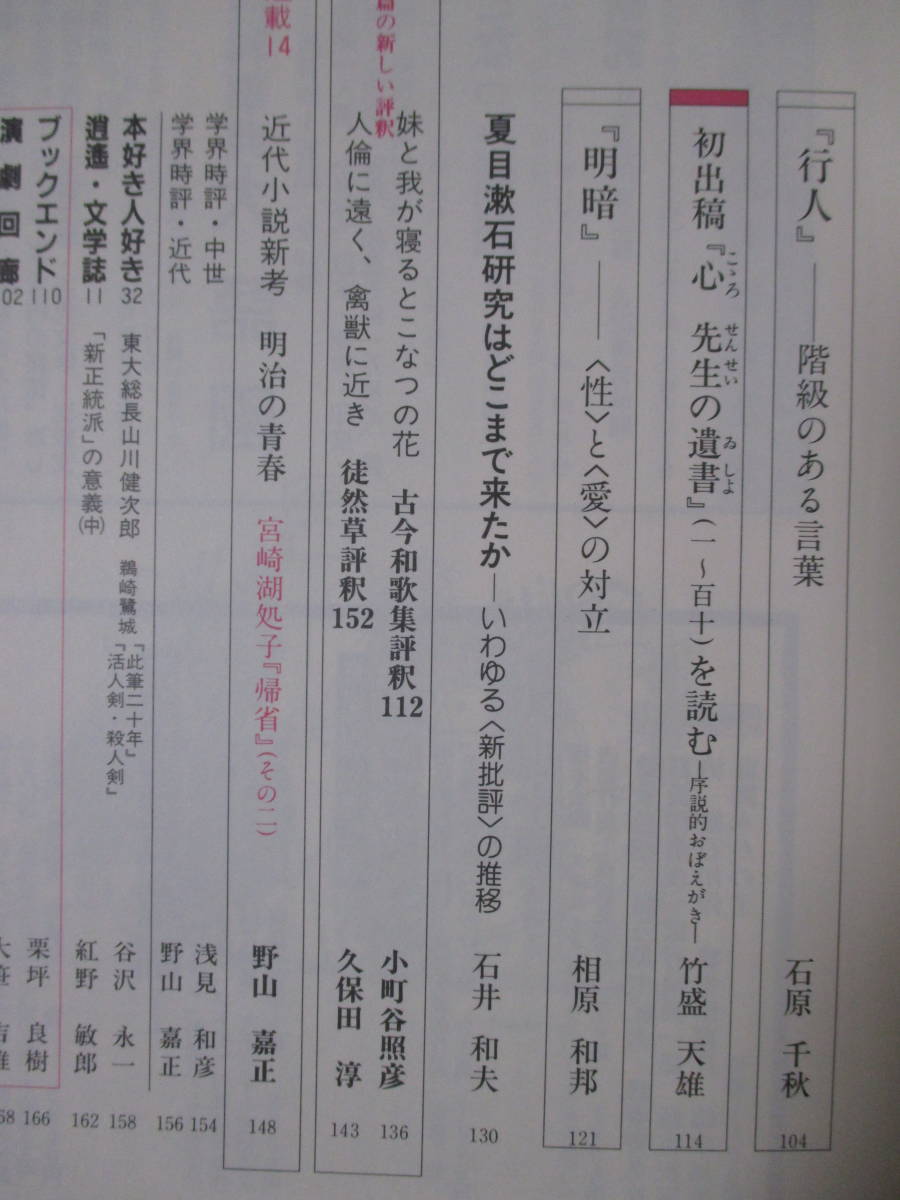 『行人』――階級のある言葉 石原 千秋 104
初出稿『心 先生の遺書』（一～百十）を読む―序説的おぼえがき― 竹盛 天雄 114
こゝろ せんせい ゐしよ
『明暗』――〈性〉と〈愛〉の対立 相原 和邦 121
夏目漱石研究はどこまで来たか―いわゆる〈新批評〉の推移 石井 和夫 130
篇の新しい評釈
妹と我が寝るとこなつの花 古今和歌集評釈112 小町谷照彦 136
人倫に遠く、禽獣に近き 徒然草評釈152 久保田 淳 143
載14
近代小説新考 明治の青春 宮崎湖処子『帰省』（その二） 野山 嘉正 148
学界時評・中世 浅見 和彦 154
学界時評・近代 野山 嘉正 156
本好き人好き32 東大総長山川健次郎 鵜崎鷺城『此筆二十年』『活人剣・殺人剣』 谷沢 永一 158
逍遙・文学誌11 「新正統派」の意義（中） 紅野 敏郎 162
ブックエンド110 栗坪 良樹 166
演劇回廊